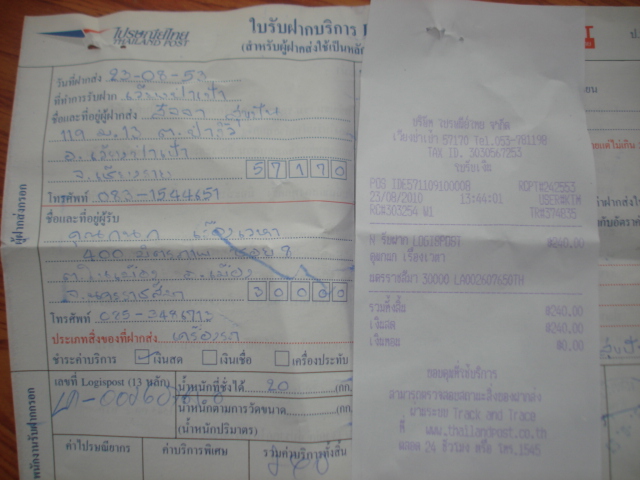 ไปรษณีย์ไทย
THAILAND POST
ใบรับฝากบริการ
(สำหรับผู้ฝากส่งใช้เป็นหลัก
วันที่ฝากส่ง 23-08-53
ที่ทำการรับฝาก เวียงป่าเป้า
ชื่อและที่อยู่ผู้ฝากส่ง
119 ม.13 ต.ป่างิ้ว
อ.เวียงป่าเป้า
จ.เชียงราย 57170
โทรศัพท์ 083-1544651
ชื่อและที่อยู่ผู้รับ
400 มิตรภาพ ซอย 8
ต.ในเมือง อ.เมือง
จ.นครราชสีมา 30000
โทรศัพท์
ประเภทสิ่งของที่ฝากส่ง
ชำระค่าบริการ เงินสด เงินเชื่อ เครื่องประทับ
เลขที่ Logispost (13 หลัก) น้ำหนักที่ชั่งได้ 20 (กก.
น้ำหนักตามการวัดขนาด (กก.
(น้ำหนักปริมาตร)
ค่าไปรษณียากร ค่าบริการพิเศษ รวมค่าบริการทั้งสิ้น
ผู้ฝากส่งกรอก
พนักงานรับฝากกรอก
บริษัท ไปรษณีย์ไทย จำกัด
เวียงป่าเป้า 57170 Tel.053-781198
TAX ID. 3030567253
ใบรับเงิน
POS ID#571109100008 RCPT#242553
23/08/2010 13:44:01 USER#KIM
RC#303254 W1 TR#374835
N รับฝาก LOGISPOST ฿240.00
คุณกนก เรืองเวหา
นครราชสีมา 30000 LA002607650TH
รวมทั้งสิ้น ฿240.00
เงินสด ฿240.00
เงินทอน ฿0.00
ขอบคุณที่ใช้บริการ
สามารถตรวจสอบสถานะสิ่งของฝากส่ง
ผ่านระบบ Track and Trace
ที่ www.thailandpost.co.th
ตลอด 24 ชั่วโมง หรือ โทร.1545